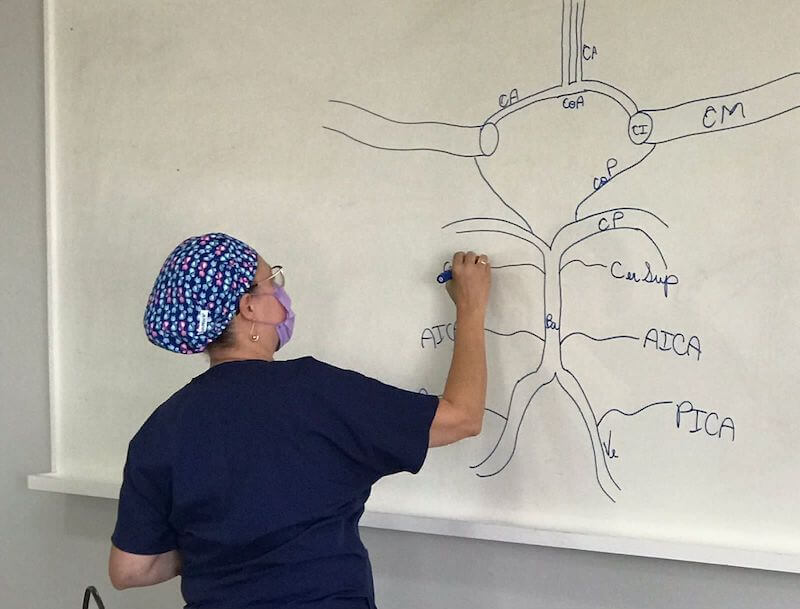 CA
CA
CoA
CI
CM
CoP
CP
CerSup
Ba
AICA
AICA
PICA
Ve